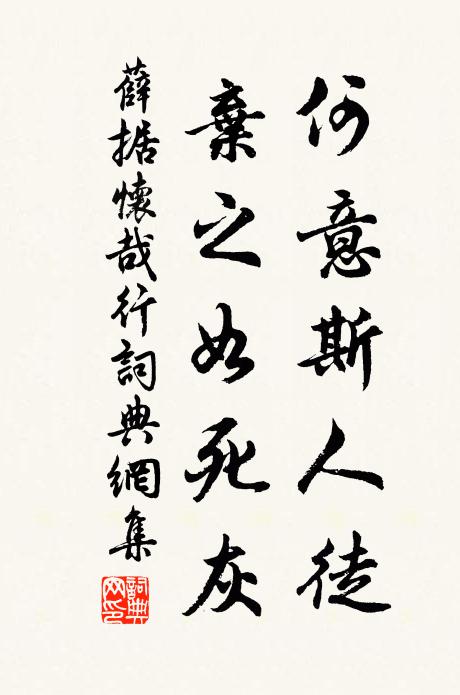 何意斯人徒
棄之如死灰
薛据懷哉行詞典網集
詞典網印